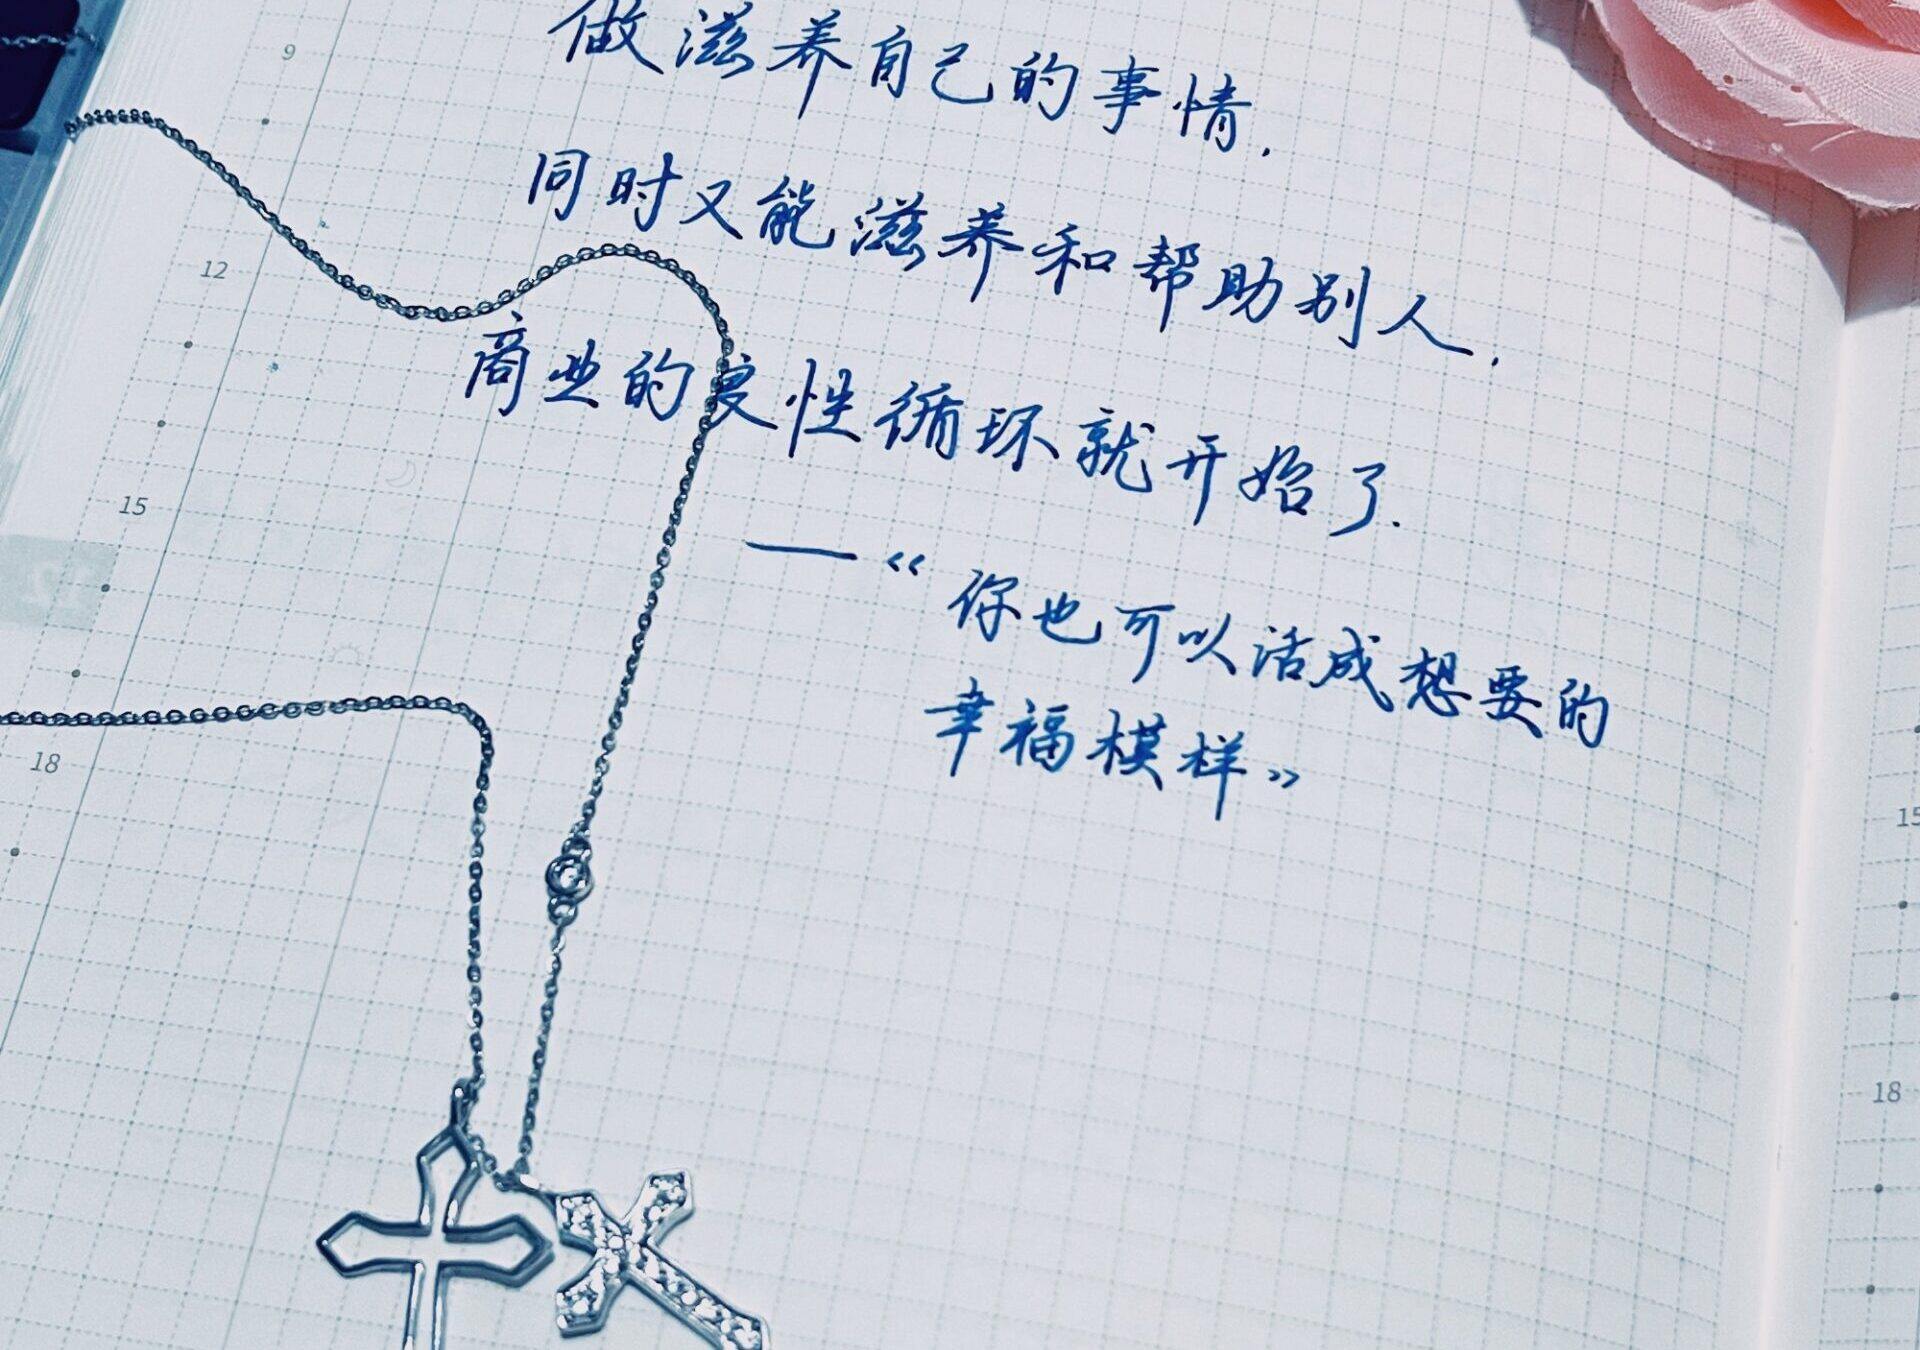 做滋养自己的事情,
同时又能滋养和帮助别人,
商业的良性循环就开始了.
—《你也可以活成想要的
幸福模样》
9
12
15
18
17
15
18